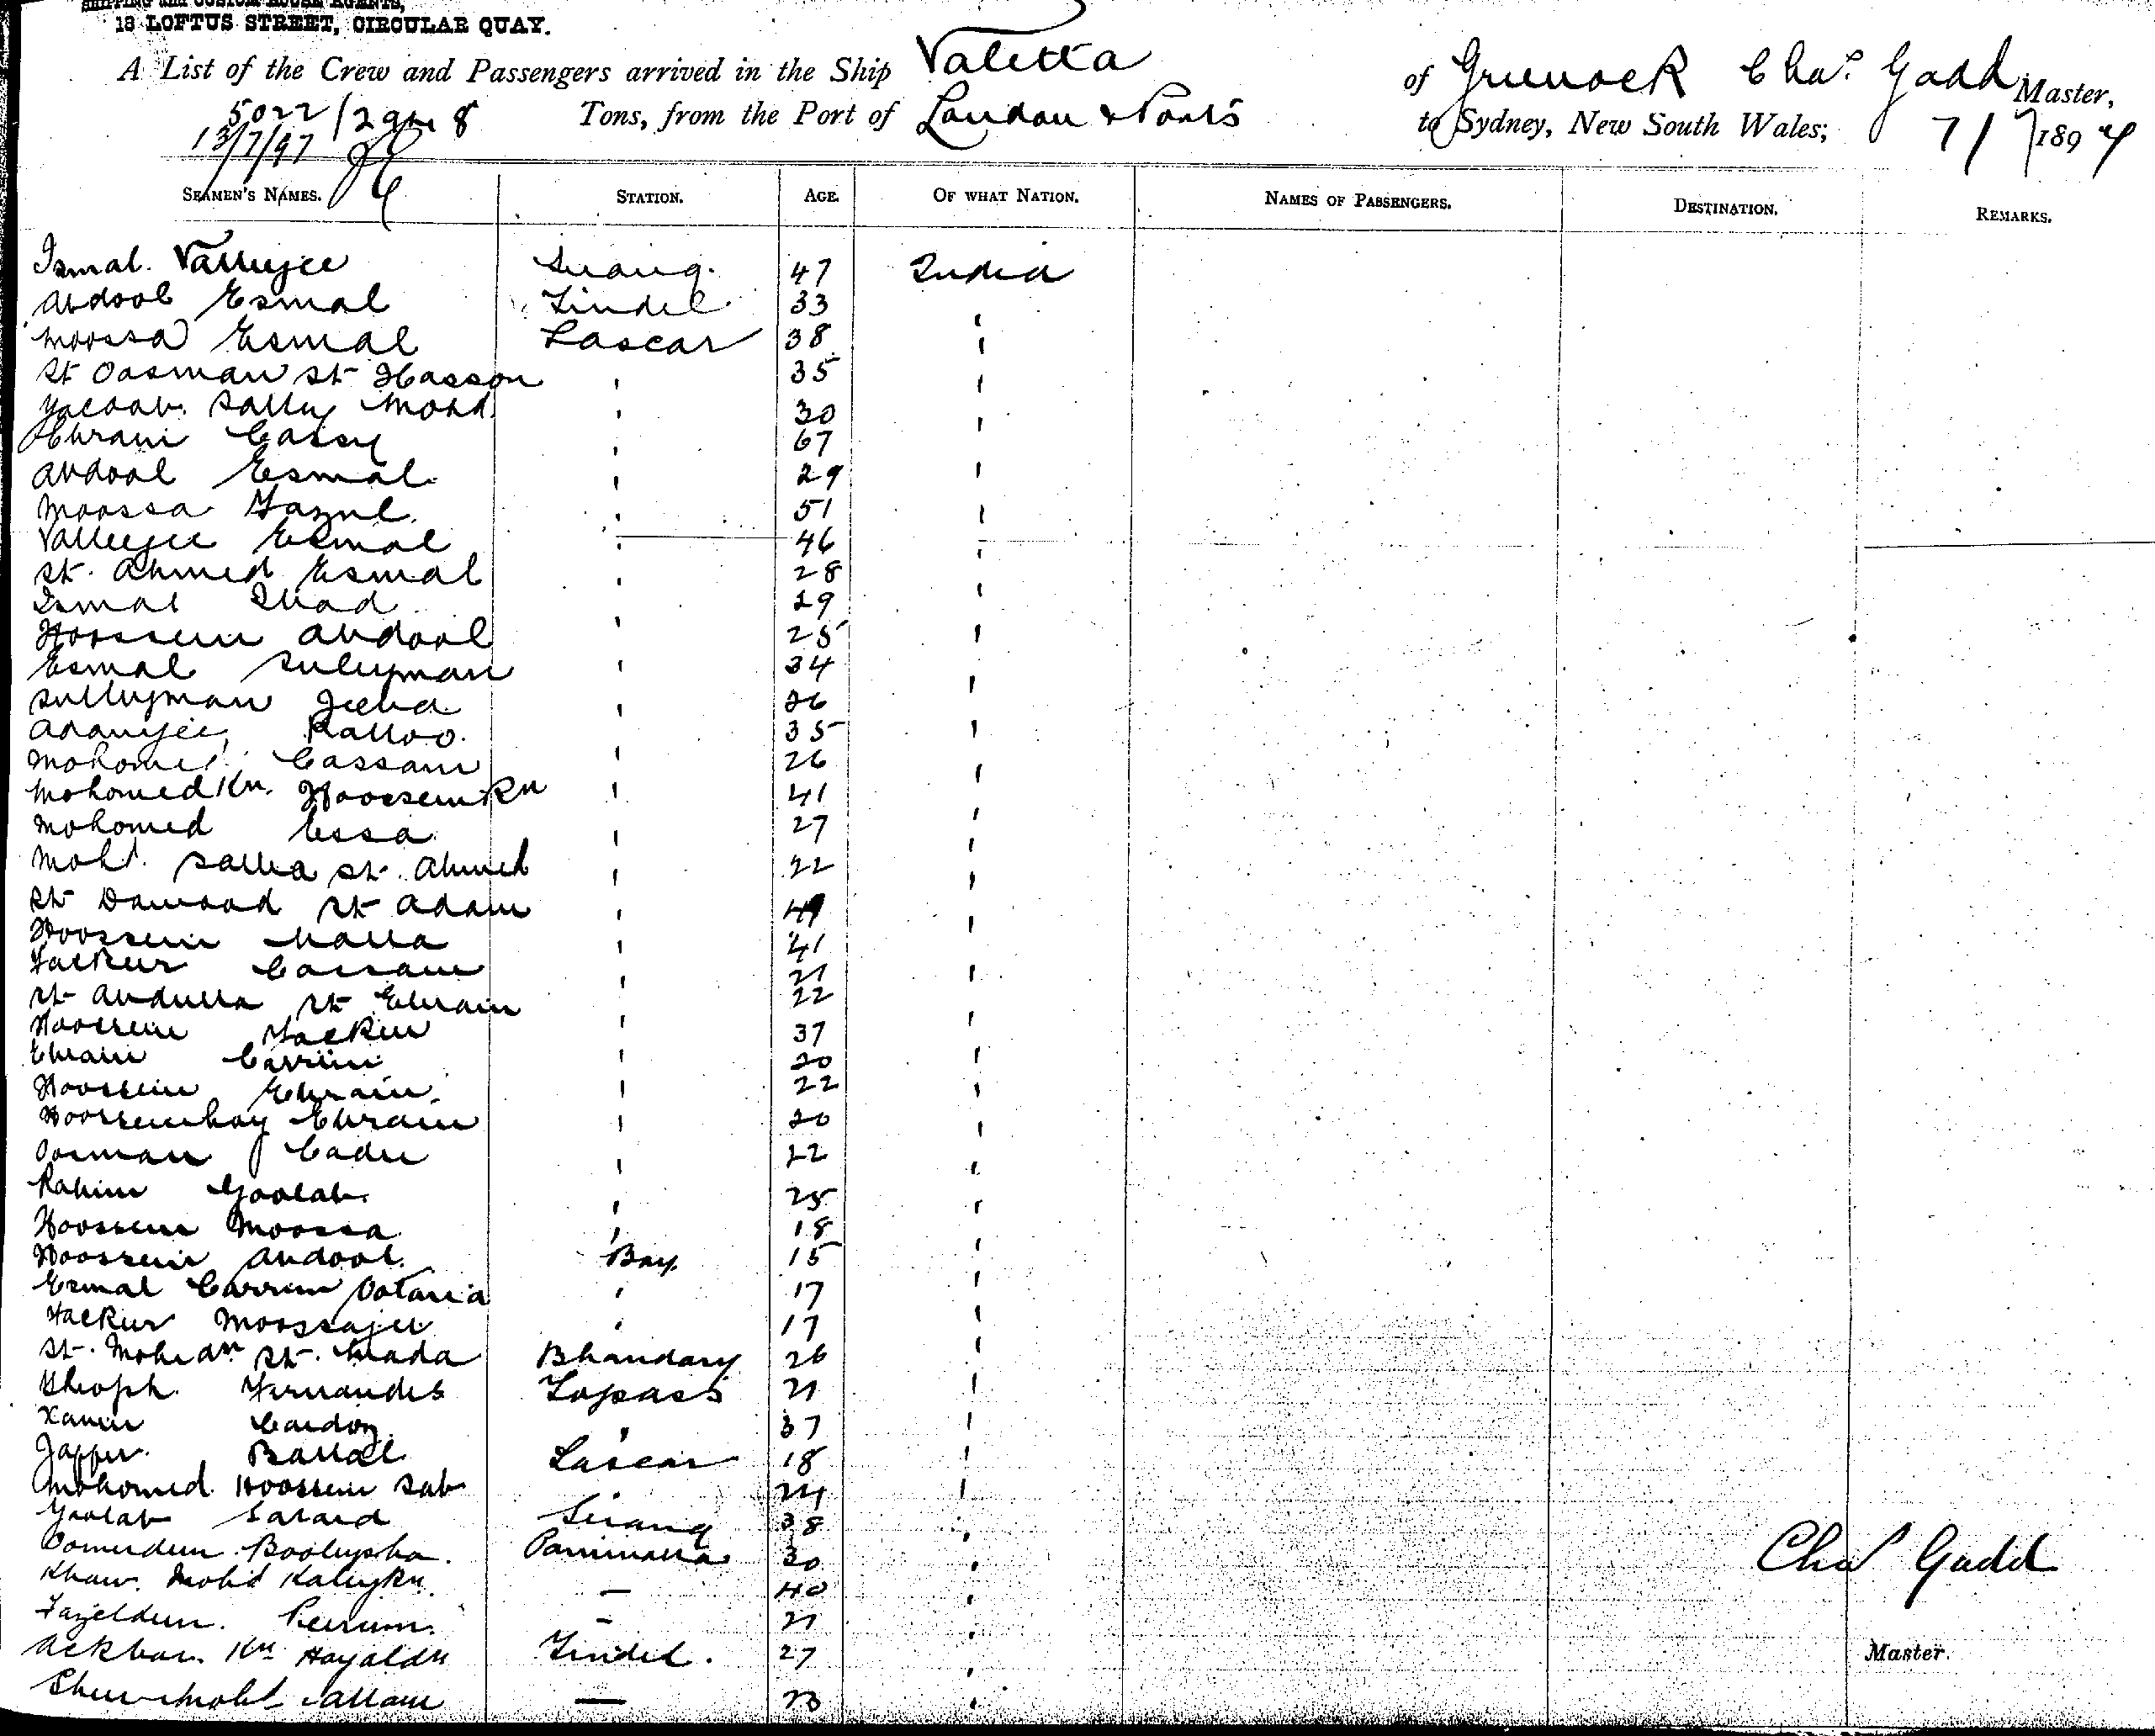 SHIPPING AND CUSTOM HOUSE AGENTS,
13 LOFTUS STREET, CIRCULAR QUAY.
A List of the Crew and Passengers arrived in the Ship Valetta of Greenock Chas. Gadd Master,
5022 Tons, from the Port of London & Ports to Sydney, New South Wales; 7/7/1897
13/7/97
SEAMEN'S NAMES. STATION. AGE. OF WHAT NATION. NAMES OF PASSENGERS. DESTINATION. REMARKS.
Ismal. Valleyjee Serang. 47 India
Abdool Esmal Tindel 33 "
Moossa Esmal Lascar 38 "
Sk Oosman Sk Hasson " 35 "
Yacoob. Salley Mohd. " 30 "
Ebram Cassy " 67
Abdool Esmal " 29 "
Moossa Fazul " 51 "
Valleyjee Esmal " 46 "
Sk. Ahmed Esmal " 28 "
Ismal " 29 "
Hoossein Abdool " 25 "
Esmal Suleyman " 34 "
Sulleyman Jeeva " 26 "
Adamjee Kalloo. " 35 "
Mohomed Cassam " 26 "
Mohomed Kn. Hoossein Kn " 41 "
Mohomed Essa " 27 "
Mohd. Salla Sk. Ahmed " 22 "
Sk Dawood Sk Adam " "
Hoossein " 41 "
Fackur Cassam " 21 "
Sk Abdulla Sk Ebraim " 22
Hoossein Fackur " 37 "
Ebraim Carrim " 20 "
Hoossein Ebraim. " 22 "
Hoosseinboy Ebraim " 20 "
Oosman Cader " 22 "
Rahim Goolab. " 25 "
Hoossein Moossa " 18 "
Hoossein Abdool. Boy. 15 "
Esmal Carrim " 17 "
Fackur Moossajee " 17 "
Sk. Sk. Bhandary 26 "
Fernandes Topass 21 "
Xavier " 37 "
Jaffer. Ballal Lascar 18 "
Mohomed Hoossein Sab 24 "
Goolab Serang 38 "
Paniwalla 30 "
Khan. Mohd — 40 "
— 21 "
Ackbar. Kn Tindel. 27 "
— 23 "
Chas Gadd
Master.